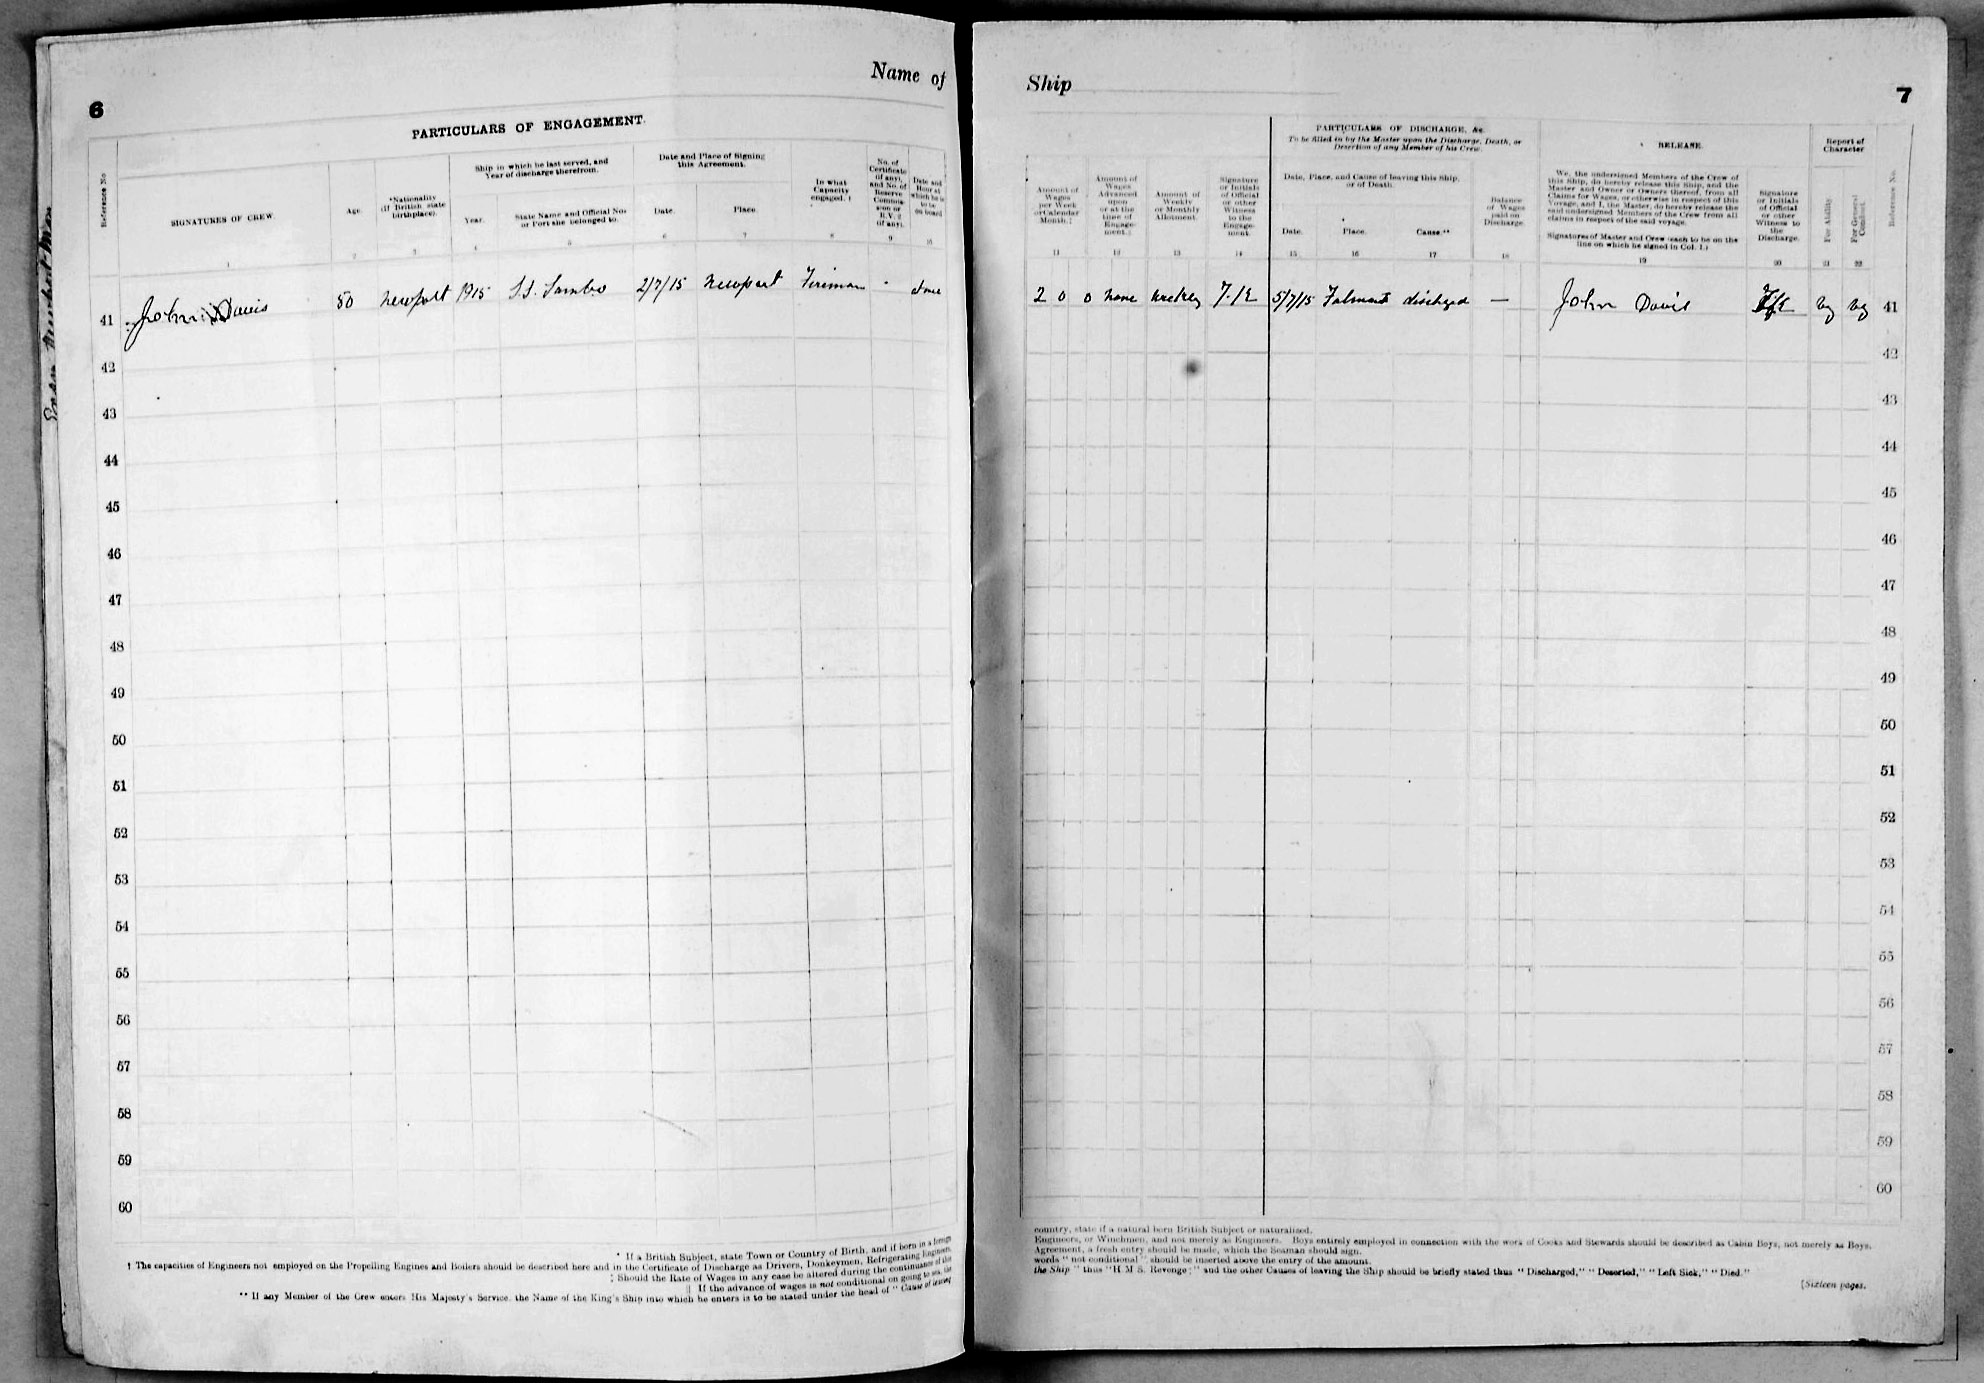 6
Name of
PARTICULARS OF ENGAGEMENT.
Reference No
SIGNATURES OF CREW
Age.
*Nationality
(if British state
birthplace).
Ship in which he last served, and
Year of discharge therefrom.
Year.
State Name and Official No.
or Port she belonged to.
Date and Place of Signing
this Agreement.
Date.
Place.
In what
Capacity
engaged. †
No. of
Certificate
(if any),
and No. of
Reserve
Commis-
sion or
R.V.2
(if any).
Date and
Hour at
which he is
to be
on board
1 2 3 4 5 6 7 8 9 10
41 John Davis 50 Newport 1915 S.S. 2/7/15 Newport Fireman -
42
43
44
45
46
47
48
49
50
51
52
53
54
55
56
57
58
59
60
* If a British Subject, state Town or Country of Birth, and if born in a foreign
† The capacities of Engineers not employed on the Propelling Engines and Boilers should be described here and in the Certificate of Discharge as Drivers, Donkeymen, Refrigerating Engineers,
‡ Should the Rate of Wages in any case be altered during the continuance of the
|| If the advance of wages is not conditional on going to sea, the
** If any Member of the Crew enters His Majesty's Service, the Name of the King's Ship into which he enters is to be stated under the head of "Cause of leaving
Ship
7
Amount of
Wages
per Week
or Calendar
Month. ‡
Amount of
Wages
Advanced
upon
or at the
time of
Engage-
ment.
Amount of
Weekly
or Monthly
Allotment.
Signature
or Initials
of Official
or other
Witness
to the
Engage-
ment.
PARTICULARS OF DISCHARGE, &c.
To be filled in by the Master upon the Discharge, Death, or
Desertion of any Member of his Crew.
Date, Place, and Cause of leaving this Ship,
or of Death.
Date.
Place.
Cause.**
Balance
of Wages
paid on
Discharge.
RELEASE.
We, the undersigned Members of the Crew of
this Ship, do hereby release this Ship, and the
Master and Owner or Owners thereof, from all
Claims for Wages, or otherwise in respect of this
Voyage, and I, the Master, do hereby release the
said undersigned Members of the Crew from all
claims in respect of the said voyage.
Signatures of Master and Crew (each to be on the
line on which he signed in Col. 1.)
Signature
or Initials
of Official
or other
Witness to
the
Discharge.
Report of
Character
For Ability
For General
Conduct.
Reference No.
11 12 13 14 15 16 17 18 19 20 21 22
2 0 0 None 5/7/15 Falmouth dischged — John Davis Vg Vg 41
42
43
44
45
46
47
48
49
50
51
52
53
54
55
56
57
58
59
60
country, state if a natural born British Subject or naturalised.
Engineers, or Winchmen, and not merely as Engineers. Boys entirely employed in connection with the work of Cooks and Stewards should be described as Cabin Boys, not merely as Boys.
Agreement, a fresh entry should be made, which the Seaman should sign.
words "not conditional" should be inserted above the entry of the amount.
the Ship" thus "H.M.S. Revenge;" and the other Causes of leaving the Ship should be briefly stated thus "Discharged," "Deserted," "Left Sick," "Died."
[Sixteen pages.